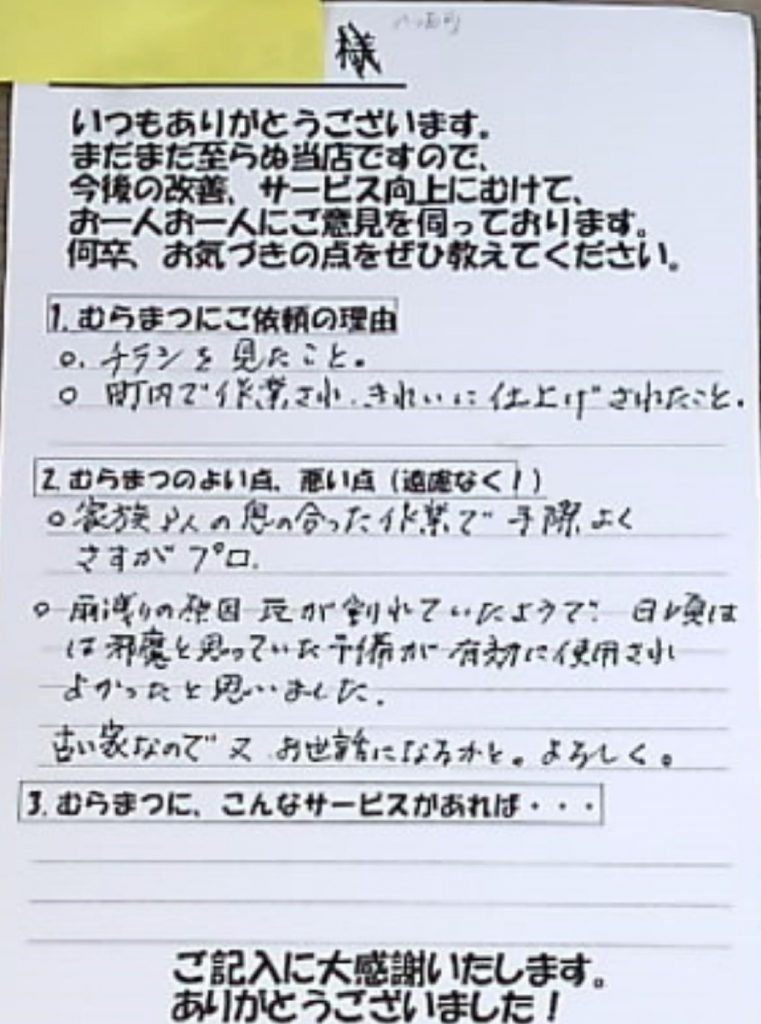 様
いつもありがとうございます。
まだまだ至らぬ当店ですので、
今後の改善、サービス向上にむけて、
お一人お一人にご意見を伺っております。
何卒、お気づきの点をぜひ教えてください。
1. むらまつにご依頼の理由
○. チラシを見たこと。
○ 町内で作業され、きれいに仕上げされたこと。
2. むらまつのよい点、悪い点(遠慮なく!)
○ 家族3人の息の合った作業で手際よく
さすがプロ.
○ 雨漏りの原因 瓦が割れていたようで 日頃は
は邪魔と思っていた予備が有効に使用され
よかったと思いました.
古い家なので又お世話になるかと。よろしく。
3. むらまつに、こんなサービスがあれば・・・
ご記入に大感謝いたします。
ありがとうございました!